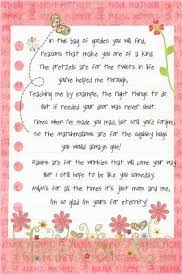 In this bag of goodies you will find,
Reasons that make you one of a kind.
The pretzels are for the twists in life
you've helped me through,
Teaching me by example, the right things to do.
But if needed your door was never shut.
Times when I've made you mad, but still you'd forgive,
so the marshmallows are for the squishy hugs
you would always give!
Raisins are for the wrinkles that will come your way,
But I still hope to be like you someday.
M&M's for all the times it's just mom and me,
I'm so glad I'm yours for eternity!